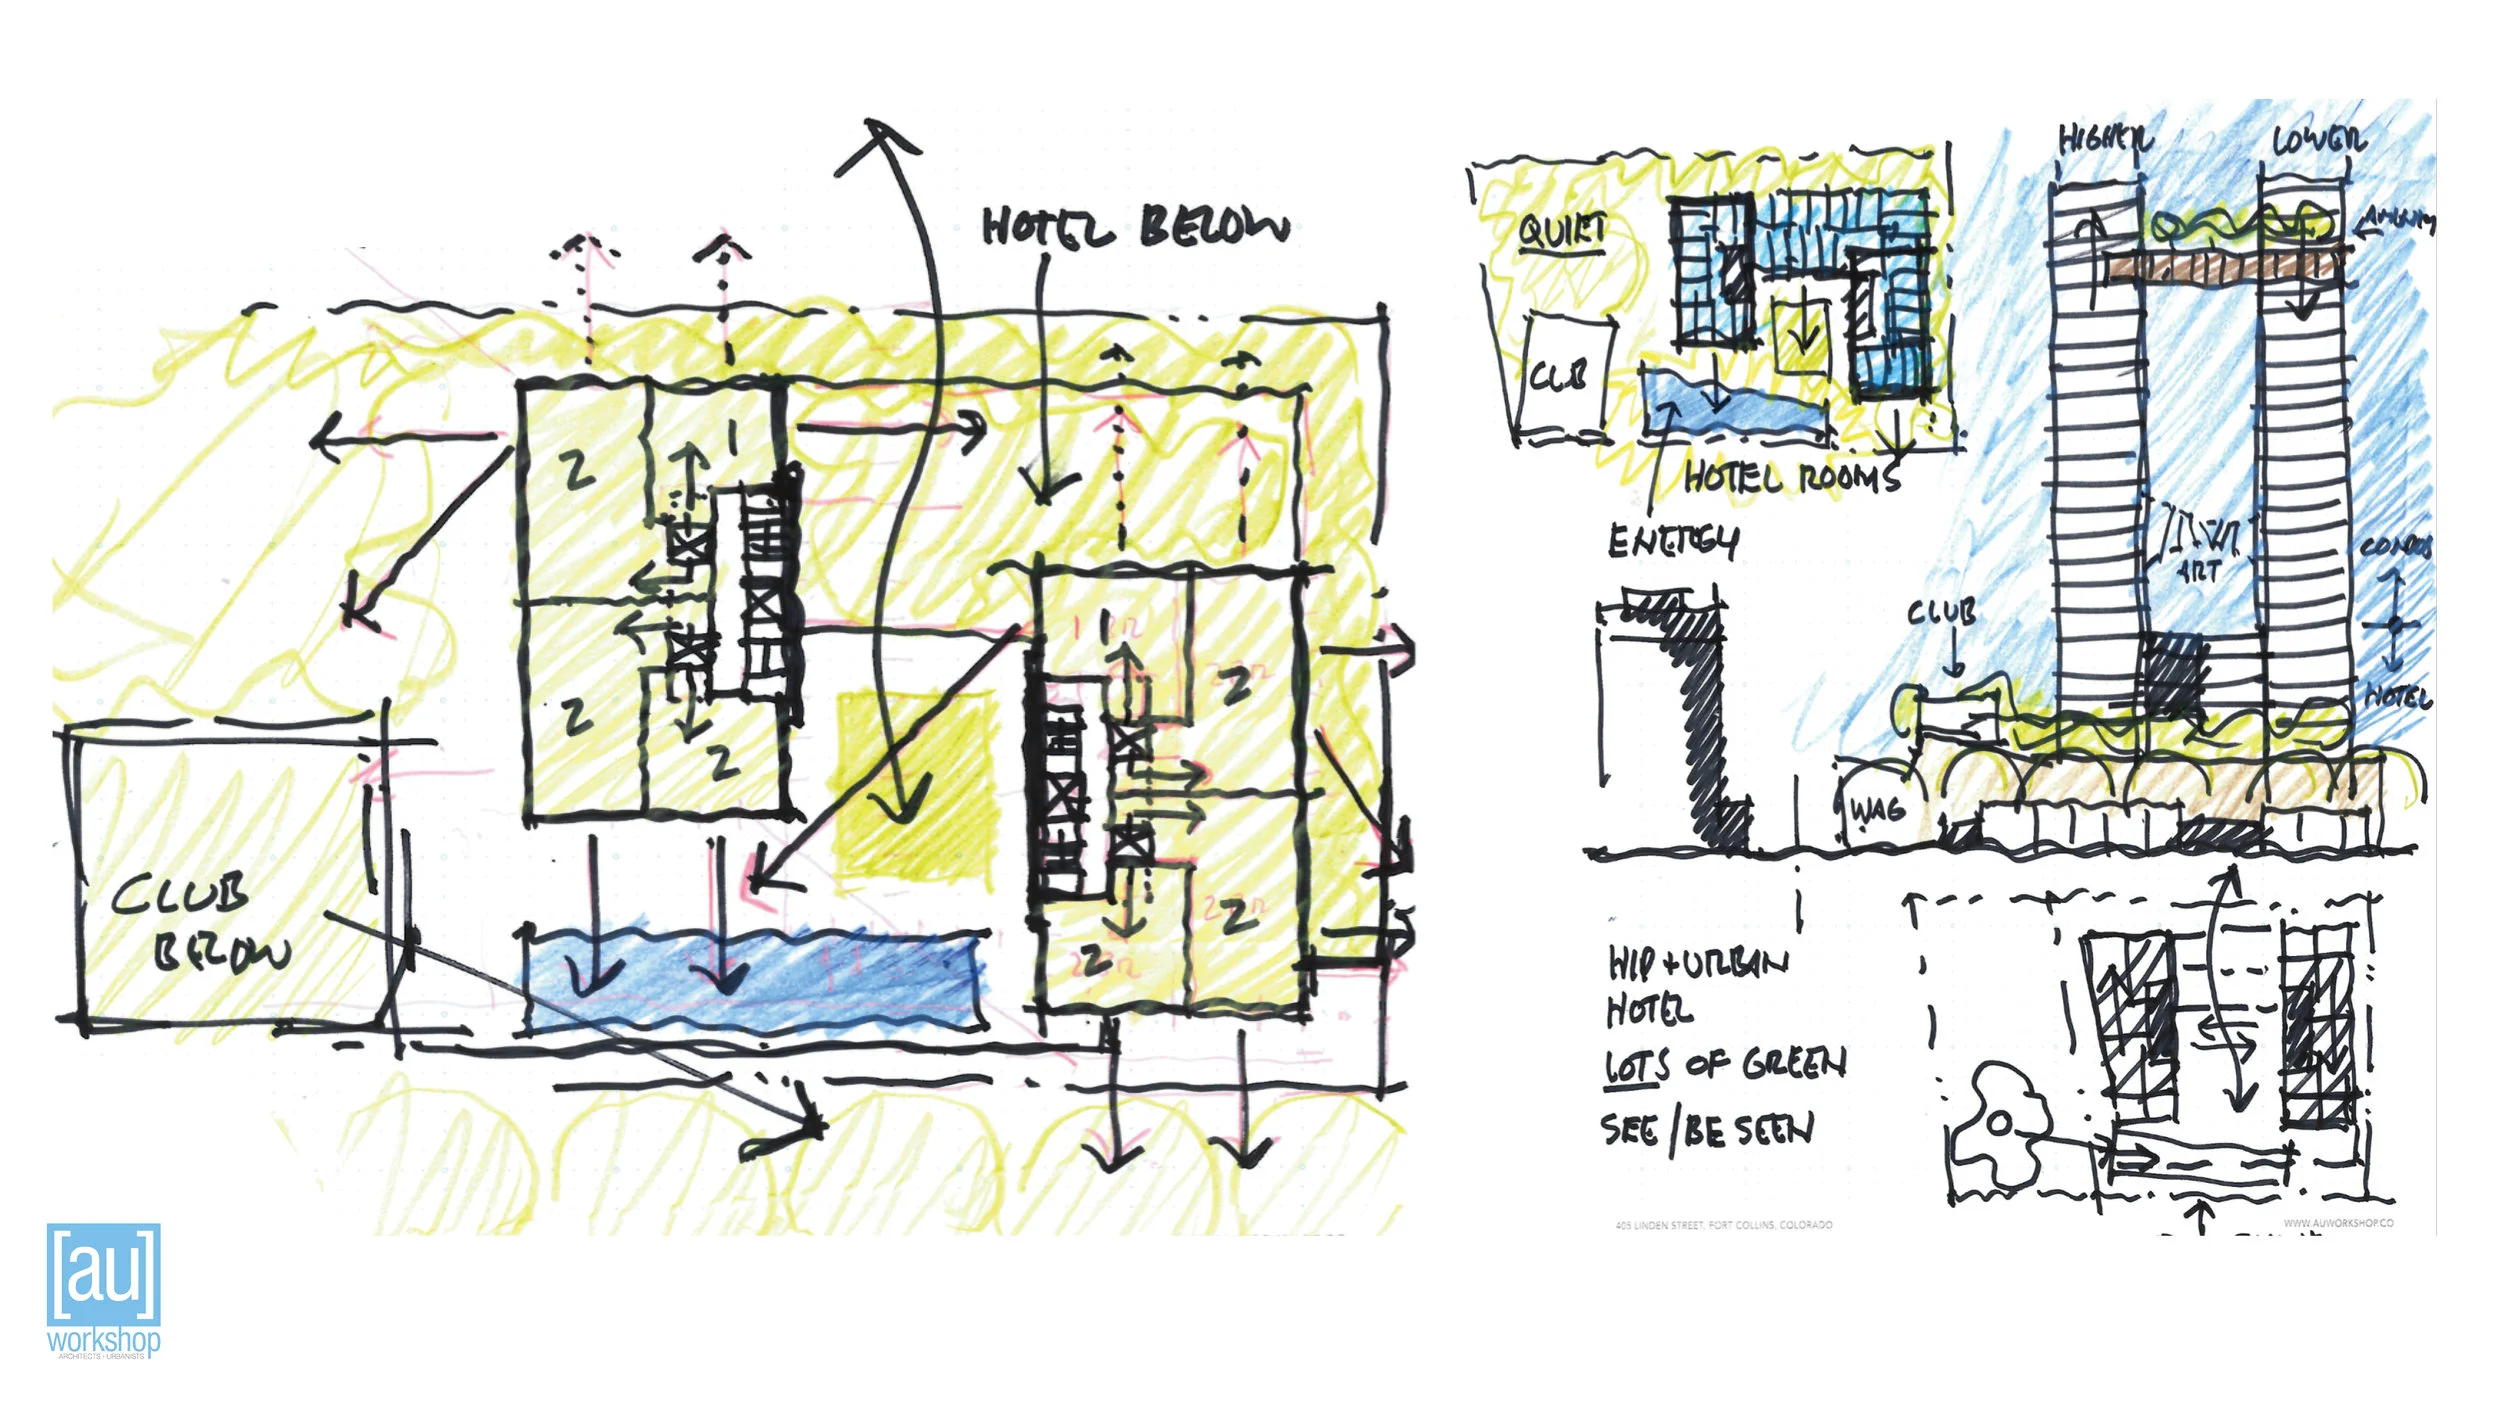 HOTEL BELOW
2
1
2
2
1
2
2
2
CLUB
BELOW
QUIET
CLUB
HOTEL ROOMS
ENERGY
HIGHER
LOWER
ART
CONDOS
HOTEL
CLUB
WAG
HIP + URBAN
HOTEL
LOTS OF GREEN
SEE / BE SEEN
405 LINDEN STREET, FORT COLLINS, COLORADO
WWW.AUWORKSHOP.CO
[au]
workshop
ARCHITECTS + URBANISTS